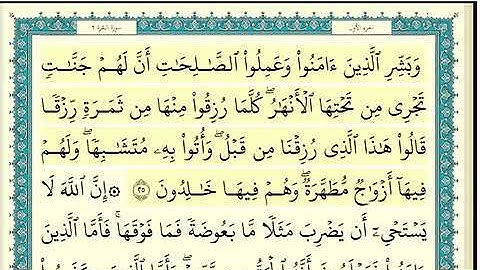 الجزء الأول
سورة البقرة ٢
وَبَشِّرِ ٱلَّذِينَ ءَامَنُوا۟ وَعَمِلُوا۟ ٱلصَّـٰلِحَـٰتِ أَنَّ لَهُمْ جَنَّـٰتٍ
تَجْرِى مِن تَحْتِهَا ٱلْأَنْهَـٰرُ ۖ كُلَّمَا رُزِقُوا۟ مِنْهَا مِن ثَمَرَةٍ رِّزْقًا
قَالُوا۟ هَـٰذَا ٱلَّذِى رُزِقْنَا مِن قَبْلُ ۖ وَأُتُوا۟ بِهِۦ مُتَشَـٰبِهًا ۖ وَلَهُمْ
فِيهَآ أَزْوَٰجٌ مُّطَهَّرَةٌ ۖ وَهُمْ فِيهَا خَـٰلِدُونَ ٢٥ ۞ إِنَّ ٱللَّهَ لَا
يَسْتَحْىِۦٓ أَن يَضْرِبَ مَثَلًا مَّا بَعُوضَةً فَمَا فَوْقَهَا ۚ فَأَمَّا ٱلَّذِينَ